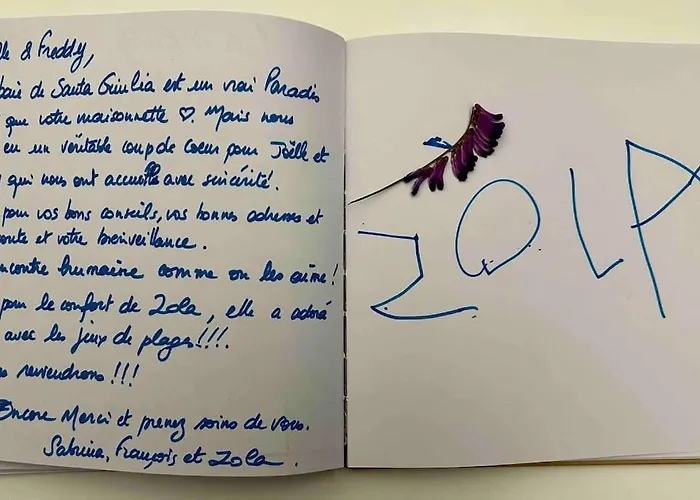 & Freddy,
baie de Santa Giulia est un vrai Paradis
que votre maisonnette ♡. Mais nous
eu un véritable coup de coeur pour Joëlle et
qui nous ont accueillis avec sincérité.
pour vos bons conseils, vos bonnes adresses et
et votre bienveillance.
humaine comme on les aime!
pour le confort de Zola, elle a adoré
avec les jeux de plages!!!.
reviendrons!!!
Encore Merci et prenez soins de vous.
Sabrina, François et Zola.
ZOLA